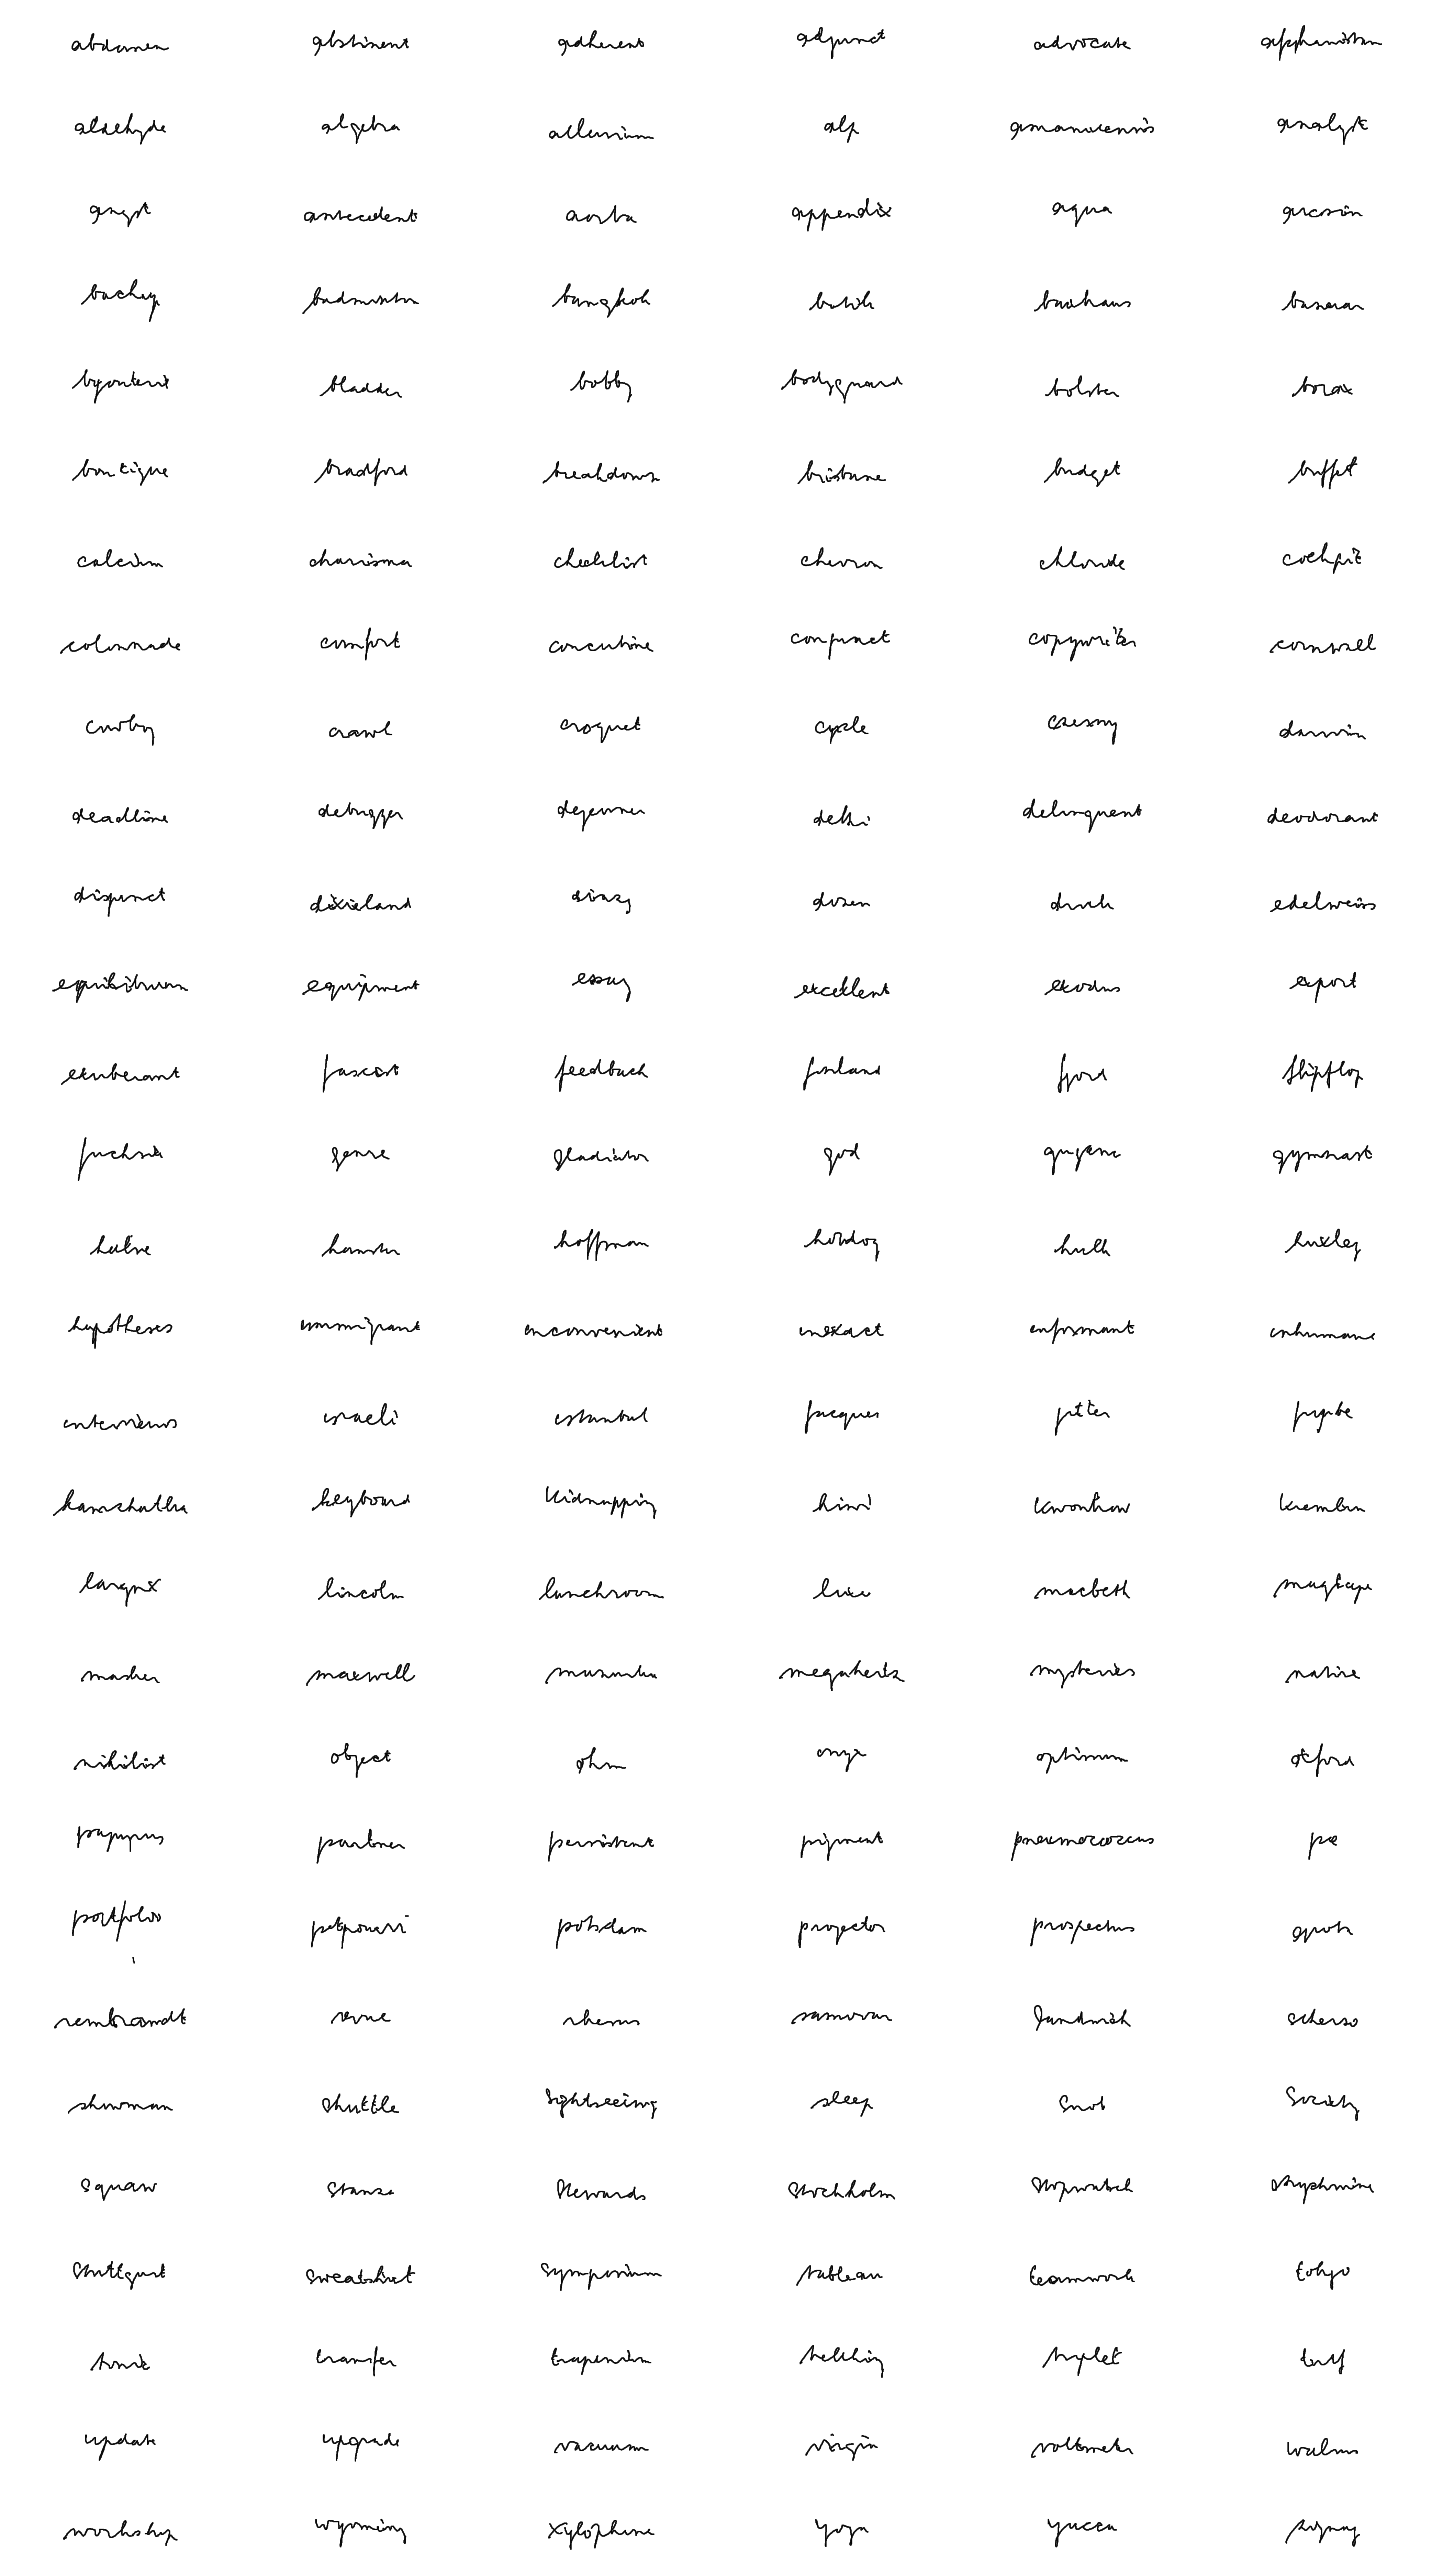 abdomen abstinent adherent adjunct advocate afghanistan
aldehyde algebra alluvium alp amanuensis analyst
angst antecedent aorta appendix aqua arcsin
backup badminton bangkok batik bauhaus bazaar
bladder bobby bodyguard bolster borax
boutique bradford breakdown brisbane budget buffet
calcium charisma checklist chevron chloride cockpit
colonnade comfort concubine conjunct copywriter cornwall
cowboy crawl croquet cycle czerny darwin
deadline debugger dejeuner delhi delinquent deodorant
disjunct dixieland dizzy dozen duck edelweiss
equilibrium equipment essay excellent exodus export
exuberant fascist feedback finland fjord flipflop
fuchsia genre gladiator god guyana gymnast
halve hamster hoffman hotdog hulk huxley
hypotheses immigrant inconvenient inexact informant inhumane
interviews israeli istanbul jacques jitter
kamchatka keyboard kidnapping kiwi knowhow kremlin
larynx lincoln lunchroom macbeth magtape
maxwell mazurka megahertz mysteries native
nihilist object ohm onyx optimum oxford
papyrus partner persistent pigment pneumococcus
portfolio potpourri potsdam projector prospectus quota
rembrandt revue rhesus samovar sandwich scherzo
showman shuttle sightseeing sleep snob society
squaw stanza stewards stockholm stopwatch strychnine
stuttgart sweatshirt symposium tableau teamwork tokyo
tonic transfer trapezium trekking triplet turf
update upgrade vacuum virgin voltmeter walrus
workshop wyoming xylophone yoga yucca zigzag